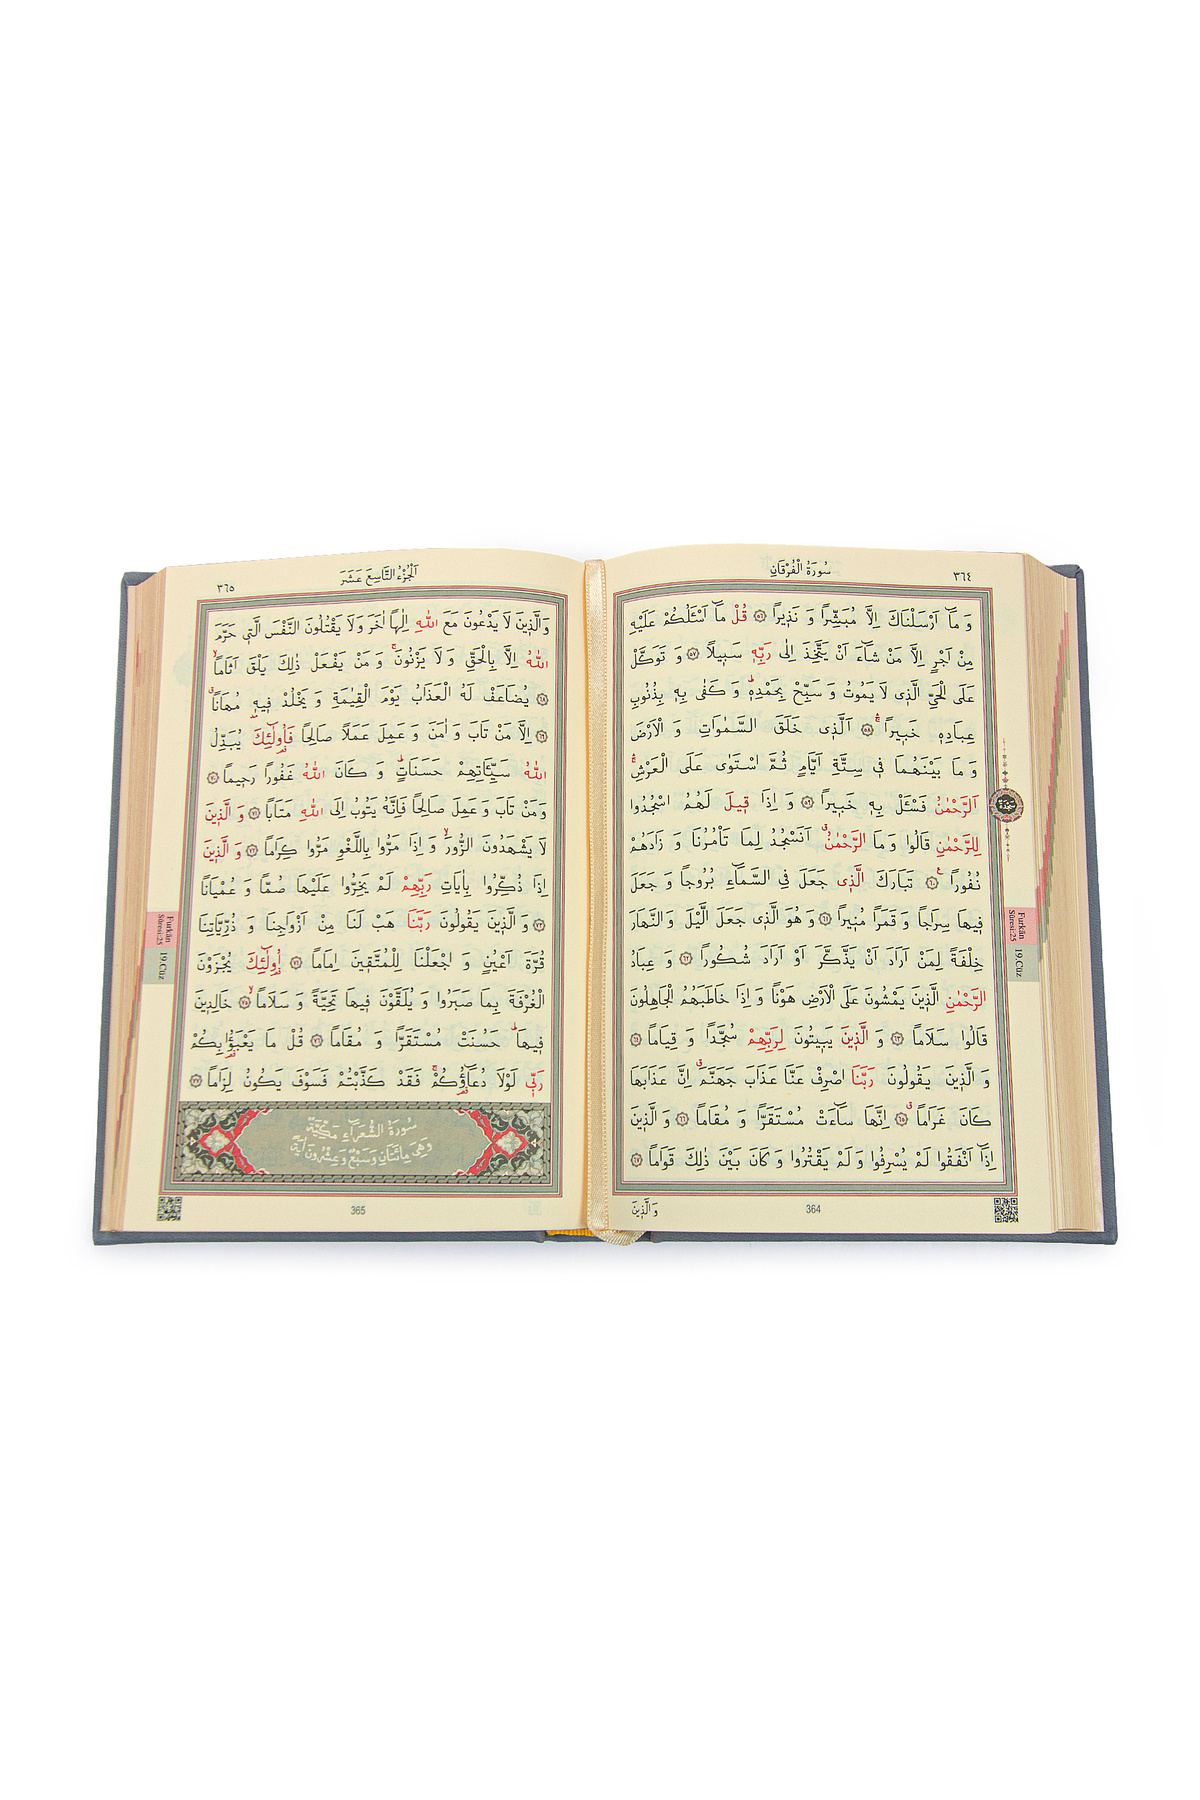 سُورَةُ الْفُرْقَانِ
٣٦٤
وَ مَٓا اَرْسَلْنَاكَ اِلَّا مُبَشِّرًا وَ نَذ۪يرًا ﴿٥٦﴾ قُلْ مَٓا اَسْـَٔلُكُمْ عَلَيْهِ
مِنْ اَجْرٍ اِلَّا مَنْ شَٓاءَ اَنْ يَتَّخِذَ اِلٰى رَبِّه۪ سَب۪يلًا ﴿٥٧﴾ وَ تَوَكَّلْ
عَلَى الْحَيِّ الَّذ۪ى لَا يَمُوتُ وَ سَبِّحْ بِحَمْدِه۪ۜ وَ كَفٰى بِه۪ بِذُنُوبِ
عِبَادِه۪ خَب۪يرًاۚ ﴿٥٨﴾ اَلَّذ۪ى خَلَقَ السَّمٰوَاتِ وَ الْاَرْضَ
وَ مَا بَيْنَهُمَا ف۪ى سِتَّةِ اَيَّامٍ ثُمَّ اسْتَوٰى عَلَى الْعَرْشِۚ
اَلرَّحْمٰنُ فَسْـَٔلْ بِه۪ خَب۪يرًا ﴿٥٩﴾ وَ اِذَا ق۪يلَ لَهُمُ اسْجُدُوا
لِلرَّحْمٰنِ قَالُوا وَ مَا الرَّحْمٰنُۗ اَنَسْجُدُ لِمَا تَأْمُرُنَا وَ زَادَهُمْ
نُفُورًا۟ ﴿٦٠﴾ تَبَارَكَ الَّذ۪ى جَعَلَ فِى السَّمَٓاءِ بُرُوجًا وَ جَعَلَ
ف۪يهَا سِرَاجًا وَ قَمَرًا مُن۪يرًا ﴿٦١﴾ وَ هُوَ الَّذ۪ى جَعَلَ الَّيْلَ وَ النَّهَارَ
خِلْفَةً لِمَنْ اَرَادَ اَنْ يَذَّكَّرَ اَوْ اَرَادَ شُكُورًا ﴿٦٢﴾ وَ عِبَادُ
الرَّحْمٰنِ الَّذ۪ينَ يَمْشُونَ عَلَى الْاَرْضِ هَوْنًا وَ اِذَا خَاطَبَهُمُ الْجَاهِلُونَ
قَالُوا سَلَامًا ﴿٦٣﴾ وَ الَّذ۪ينَ يَب۪يتُونَ لِرَبِّهِمْ سُجَّدًا وَ قِيَامًا ﴿٦٤﴾
وَ الَّذ۪ينَ يَقُولُونَ رَبَّنَا اصْرِفْ عَنَّا عَذَابَ جَهَنَّمَۗ اِنَّ عَذَابَهَا
كَانَ غَرَامًاۗ ﴿٦٥﴾ اِنَّهَا سَٓاءَتْ مُسْتَقَرًّا وَ مُقَامًا ﴿٦٦﴾ وَ الَّذ۪ينَ
اِذَٓا اَنْفَقُوا لَمْ يُسْرِفُوا وَ لَمْ يَقْتُرُوا وَ كَانَ بَيْنَ ذٰلِكَ قَوَامًا ﴿٦٧﴾
وَ الَّذ۪ينَ
364
Furkân
Sûresi:25
19.Cüz
اَلْجُزْءُ التَّاسِعَ عَشَرَ
٣٦٥
وَ الَّذ۪ينَ لَا يَدْعُونَ مَعَ اللّٰهِ اِلٰهًا اٰخَرَ وَ لَا يَقْتُلُونَ النَّفْسَ الَّت۪ى حَرَّمَ
اللّٰهُ اِلَّا بِالْحَقِّ وَ لَا يَزْنُونَۚ وَ مَنْ يَفْعَلْ ذٰلِكَ يَلْقَ اَثَامًاۙ
﴿٦٨﴾ يُضَاعَفْ لَهُ الْعَذَابُ يَوْمَ الْقِيٰمَةِ وَ يَخْلُدْ ف۪يه۪ مُهَانًاۗ
﴿٦٩﴾ اِلَّا مَنْ تَابَ وَ اٰمَنَ وَ عَمِلَ عَمَلًا صَالِحًا فَاُو۬لٰٓئِكَ يُبَدِّلُ
اللّٰهُ سَيِّـَٔاتِهِمْ حَسَنَاتٍۜ وَ كَانَ اللّٰهُ غَفُورًا رَح۪يمًا ﴿٧٠﴾
وَ مَنْ تَابَ وَ عَمِلَ صَالِحًا فَاِنَّهُ يَتُوبُ اِلَى اللّٰهِ مَتَابًا ﴿٧١﴾ وَ الَّذ۪ينَ
لَا يَشْهَدُونَ الزُّورَۙ وَ اِذَا مَرُّوا بِاللَّغْوِ مَرُّوا كِرَامًا ﴿٧٢﴾ وَ الَّذ۪ينَ
اِذَا ذُكِّرُوا بِاٰيَاتِ رَبِّهِمْ لَمْ يَخِرُّوا عَلَيْهَا صُمًّا وَ عُمْيَانًا
﴿٧٣﴾ وَ الَّذ۪ينَ يَقُولُونَ رَبَّنَا هَبْ لَنَا مِنْ اَزْوَاجِنَا وَ ذُرِّيَّاتِنَا
قُرَّةَ اَعْيُنٍ وَ اجْعَلْنَا لِلْمُتَّق۪ينَ اِمَامًا ﴿٧٤﴾ اُو۬لٰٓئِكَ يُجْزَوْنَ
الْغُرْفَةَ بِمَا صَبَرُوا وَ يُلَقَّوْنَ ف۪يهَا تَحِيَّةً وَ سَلَامًاۙ ﴿٧٥﴾ خَالِد۪ينَ
ف۪يهَاۜ حَسُنَتْ مُسْتَقَرًّا وَ مُقَامًا ﴿٧٦﴾ قُلْ مَا يَعْبَؤُ۬ا بِكُمْ
رَبّ۪ى لَوْلَا دُعَٓاؤُ۬كُمْۚ فَقَدْ كَذَّبْتُمْ فَسَوْفَ يَكُونُ لِزَامًا ﴿٧٧﴾
سُورَةُ الشُّعَرَاءِ مَكِّيَّةٌ
وَهِىَ مِائَتَانِ وَسَبْعٌ وَعِشْرُونَ اٰيَةً
365
Furkân
Sûresi:25
19.Cüz